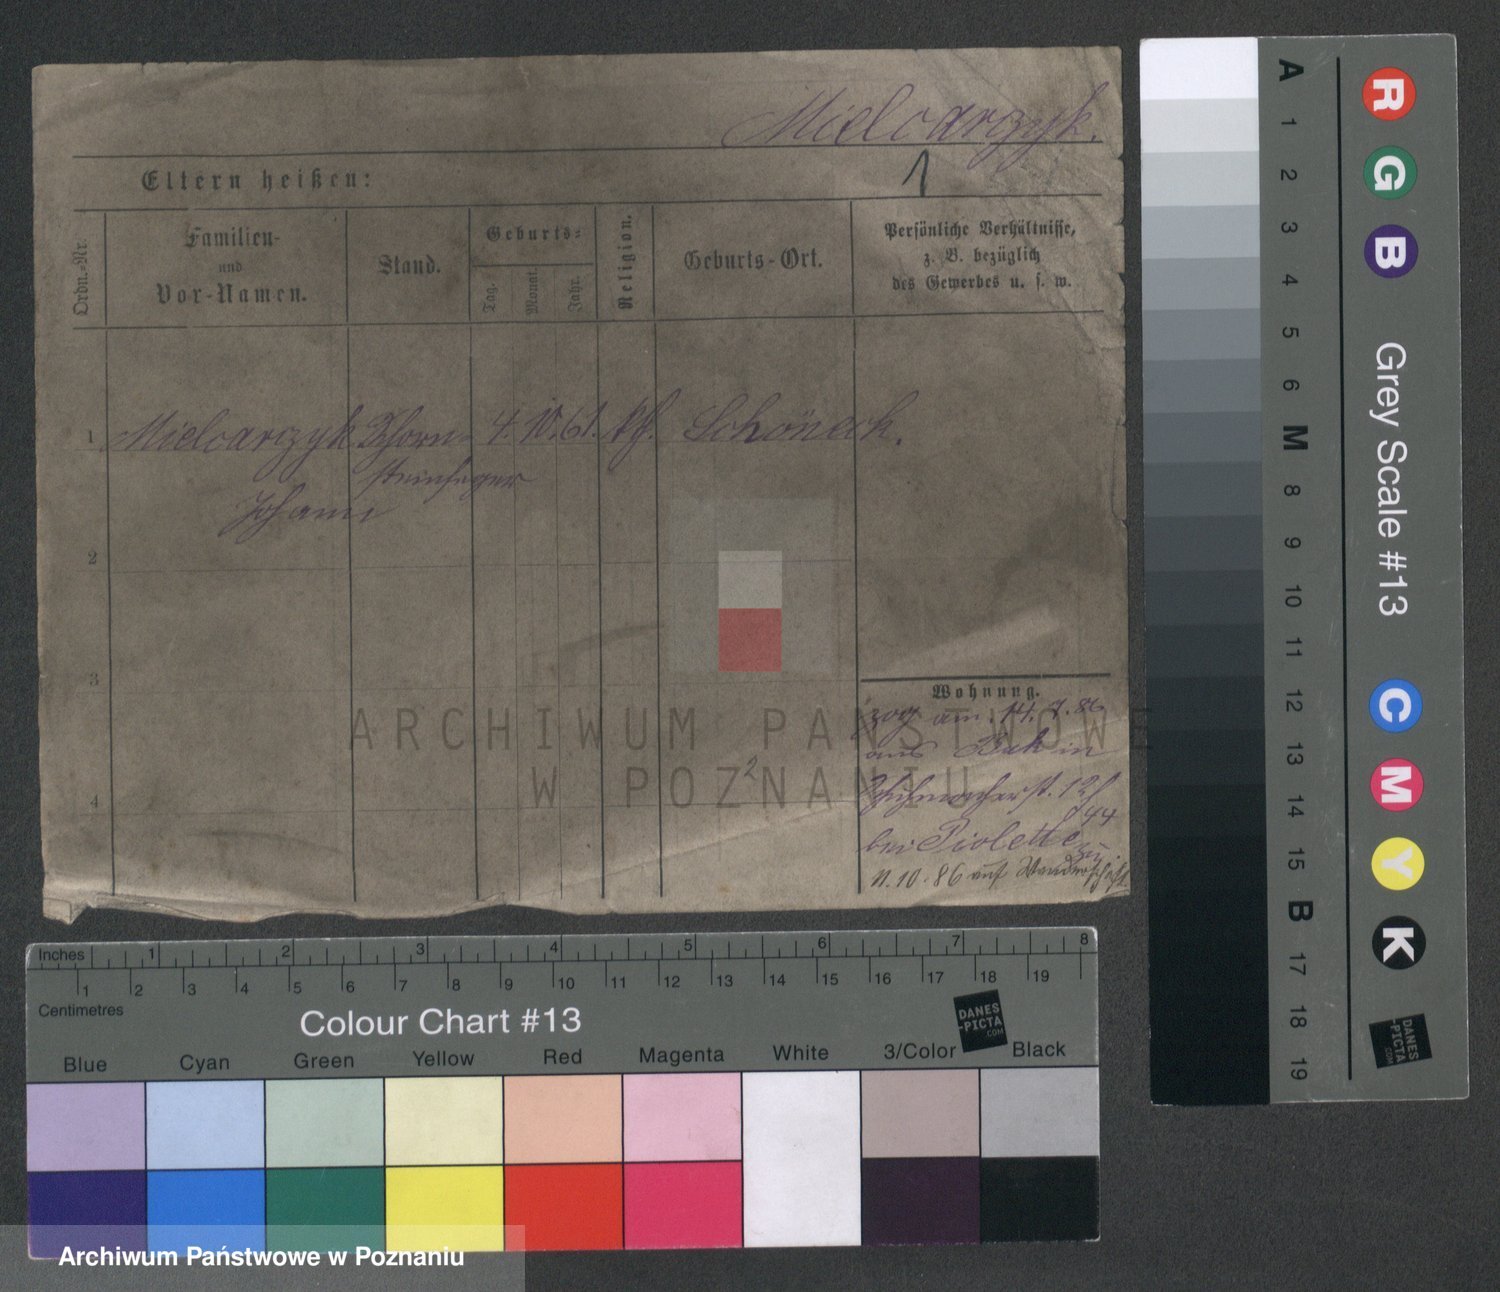 Mielcarzyk.
Eltern heißen:
1
Ordn.-Nr.
Familien-
und
Vor-Namen.
Stand.
Geburts-
Tag.
Monat.
Jahr.
Religion.
Geburts-Ort.
Persönliche Verhältnisse,
z. B. bezüglich
des Gewerbes u. s. w.
1 Mielcarzyk Schorn- 4. 10. 61. kth. Schöneck.
steinfeger
Johann
2
3
4
Wohnung.
zog am 14. 7. 86
aus Buk in
Schuhmacherst. 12
44
bei Piolette zu.
11. 10. 86 auf Wanderschaft
2
ARCHIWUM PAŃSTWOWE
W POZNANIU
A 1 2 3 4 5 6 M 8 9 10 11 12 13 14 15 B 17 18 19
R G B Grey Scale #13 C M Y K
DANES
-PICTA
.COM
Inches 1 2 3 4 5 6 7 8
1 2 3 4 5 6 7 8 9 10 11 12 13 14 15 16 17 18 19
Centimetres
Colour Chart #13
DANES
-PICTA
.COM
Blue Cyan Green Yellow Red Magenta White 3/Color Black
Archiwum Państwowe w Poznaniu